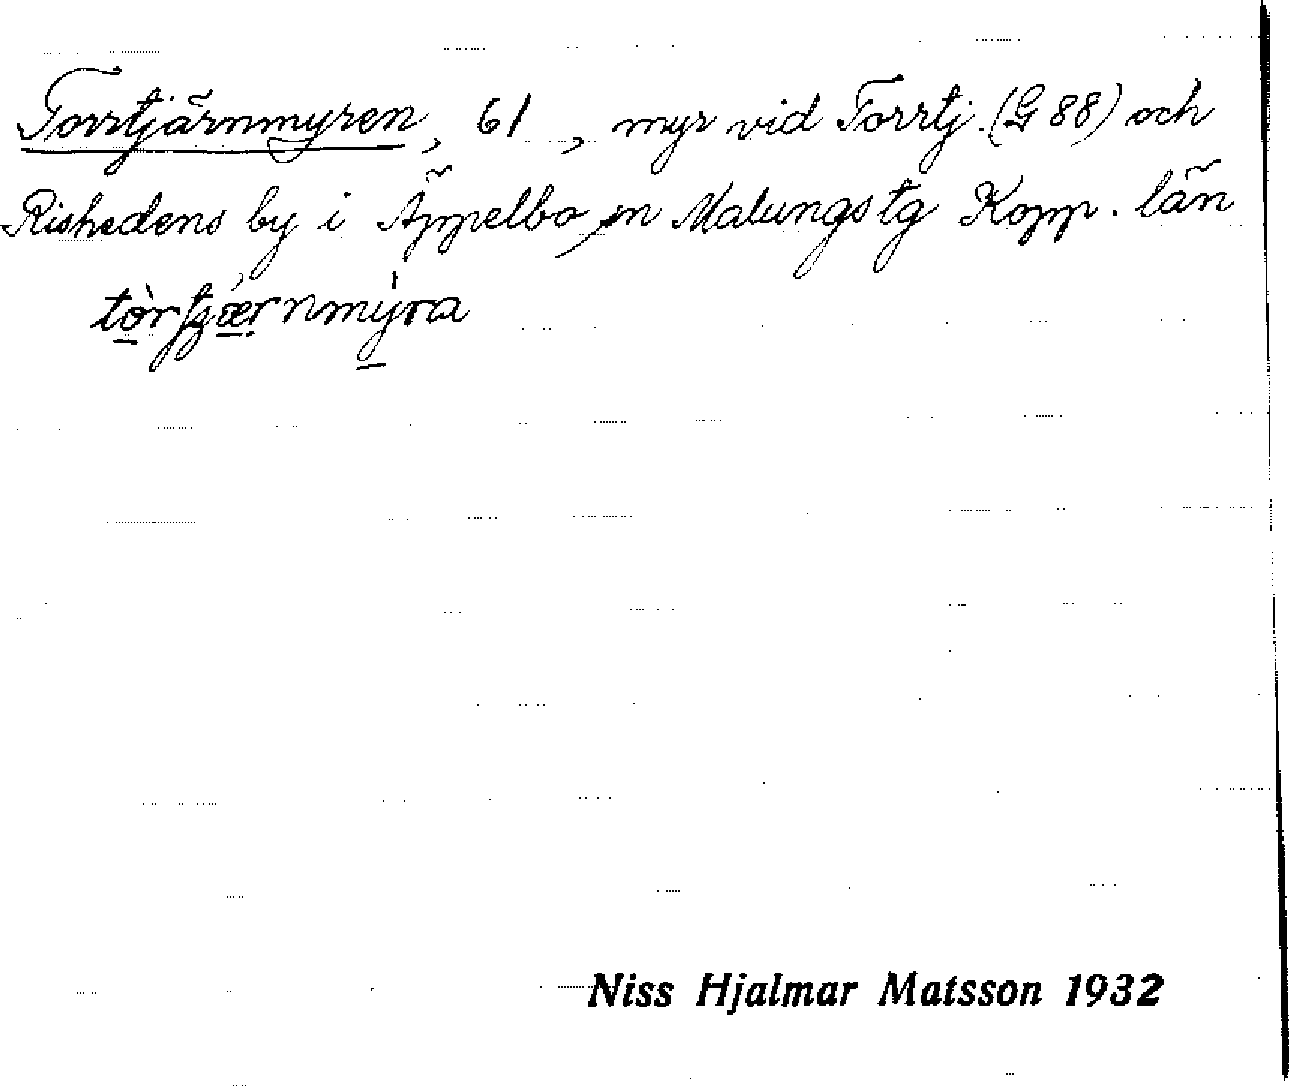 Torrtjärnmyren, 61, myr vid Torrtj. (G 88) och
Rishedens by i Äppelbo sn Malungs tg Kopp. län
tòrʃærnmýra
Niss Hjalmar Matsson 1932